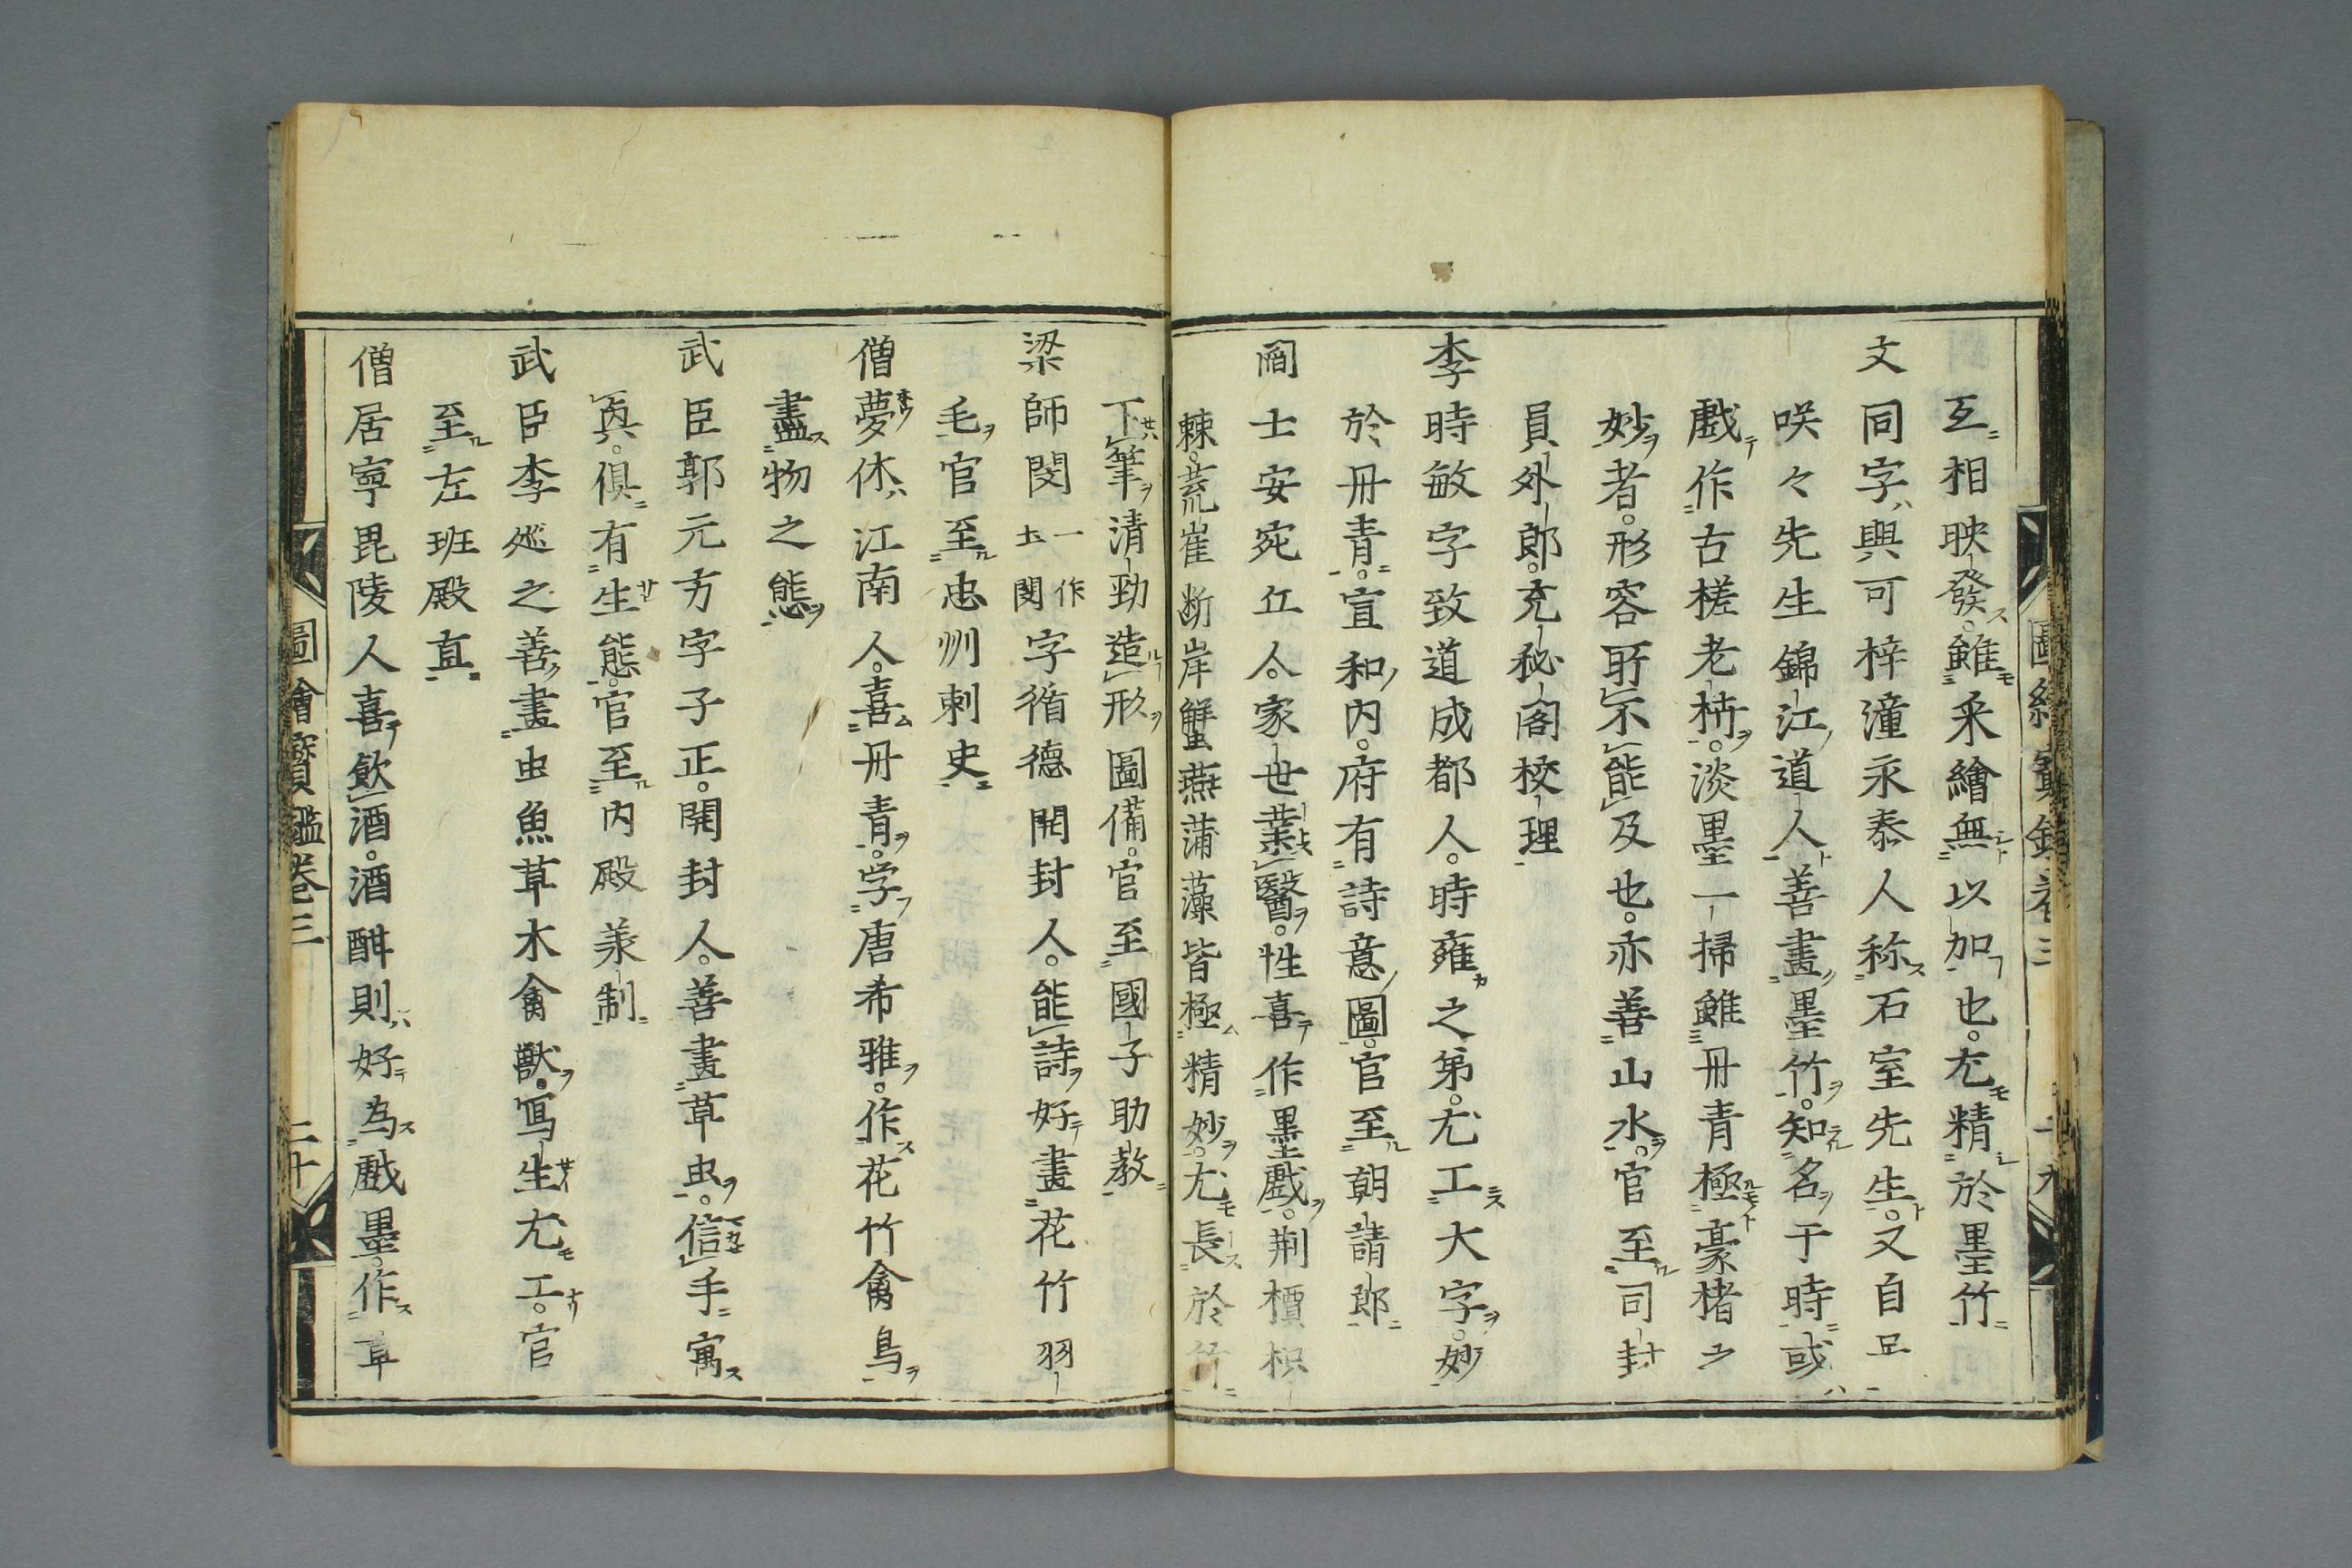 互相映發。雖采繪無以加也。尤精於墨竹
文同字與可梓潼永泰人称石室先生。又自号
咲々先生錦江道人善畫墨竹。知名于時或
戲作古槎老枿。淡墨一掃雖丹青極豪楮之
妙者。形容所不能及也。亦善山水。官至司封
員外郎。充秘閣校理
李時敏字致道成都人。時雍之弟。尤工大字。妙
於丹青。宣和内。府有詩意圖。官至朝請郎
閻士安宛丘人。家世業醫。性喜作墨戲。荆檟枳
棘。荒崔断岸蟹燕蒲藻皆極精妙。尤長於竹
下筆清勁造形圖備。官至國子助教
梁師閔一作士閔字循德開封人。能詩好畫花竹羽
毛官至忠州刺史
僧夢休江南人。喜丹青。学唐希雅。作花竹禽鳥
盡物之態
武臣郭元方字子正。開封人。善畫草虫。信手寓
真。俱有生態。官至内殿羕制
武臣李延之善畫虫魚草木禽獣。写生尤工。官
至左班殿直
僧居寧毘陵人喜飲酒。酒酣則好為戲墨。作草
圖繪寳鑑卷三
二十